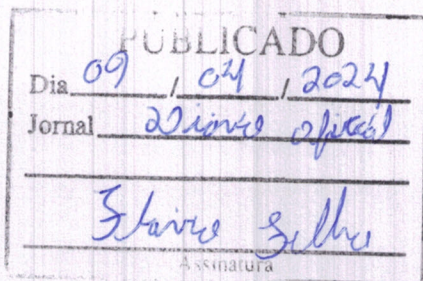 PUBLICADO
Dia 09 / 04 / 2024
Jornal Diário Oficial
Assinatura